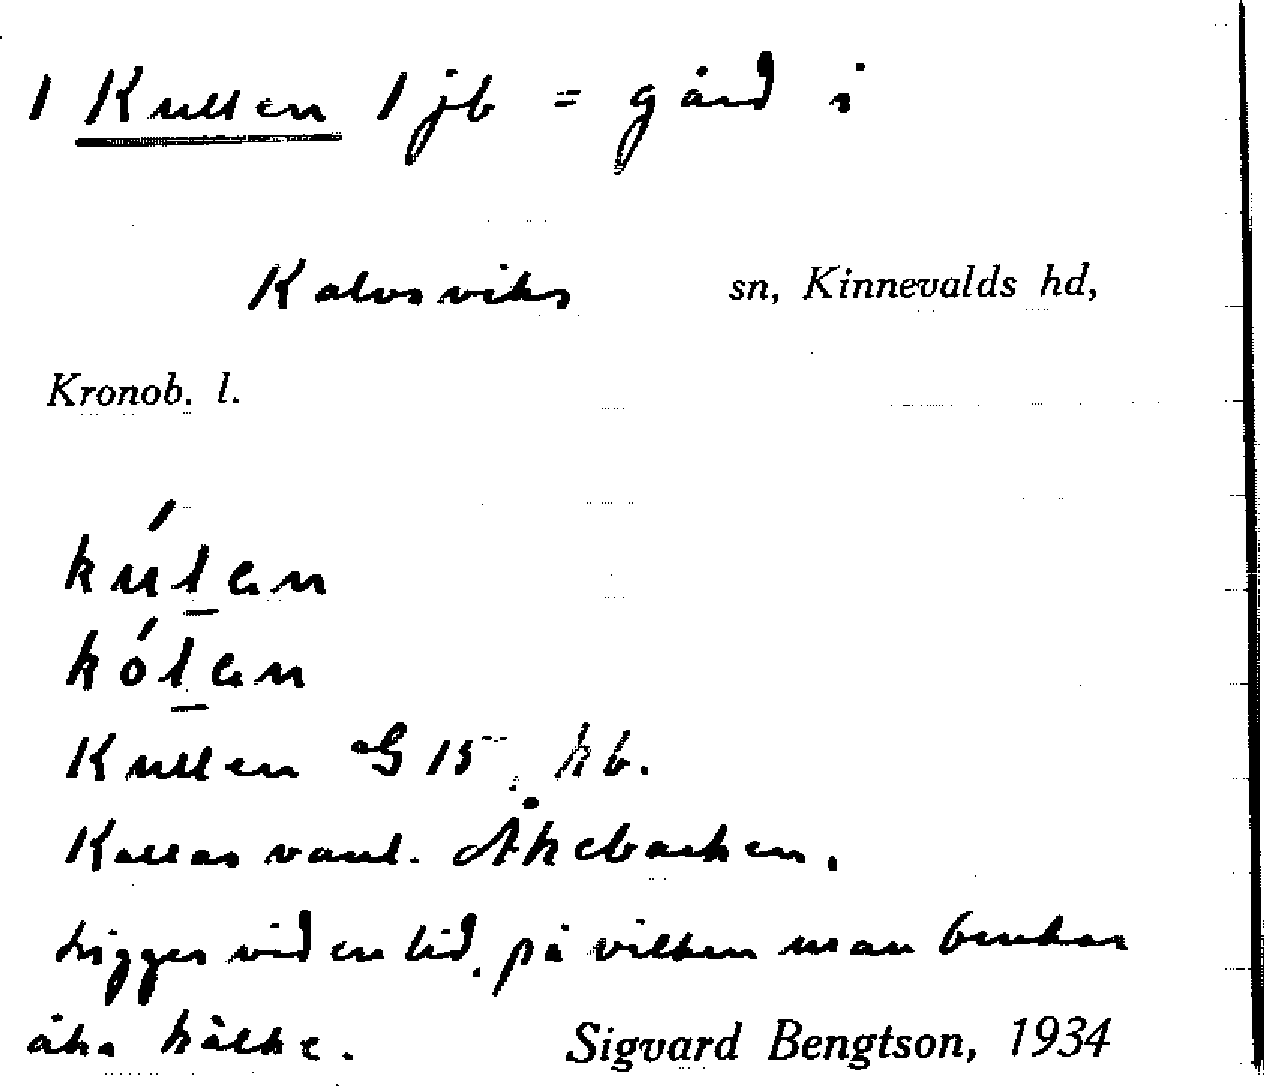 1 Kullen 1 jb = gård i
Kalvsviks sn, Kinnevalds hd,
Kronob. l.
kúlen
kólen
Kullen G 15 kb.
Kallas vanl. Åkebacken.
Ligger vid en lid, på vilken man brukar
åka kälke. Sigvard Bengtson, 1934